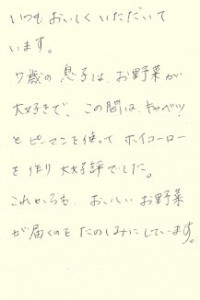 いつもおいしくいただいて
います。
7歳の息子は、お野菜が
大好きで、この間はキャベツ
とピーマンを使ってホイコーロー
を作り大好評でした。
これからも、おいしいお野菜
が届くのをたのしみにしています。